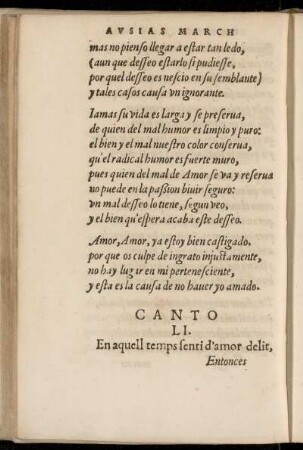 AVSIAS MARCH
mas no pienso llegar a estar tan ledo,
(aun que desseo estarlo si pudiesse,
por quel desseo es nescio en su semblante)
y tales casos causa vn ignorante.
Iamas su vida es larga y se preserua,
de quien del mal humor es limpio y puro:
el bien y el mal nuestro color conserua,
qu'el radical humor es fuerte muro,
pues quien del mal de Amor se va y reserua
no puede en la passion biuir seguro:
vn mal desseo lo tiene, segun veo,
y el bien qu'espera acaba este desseo.
Amor, Amor, ya estoy bien castigado,
por que os culpe de ingrato injustamente,
no hay lugar en mi pertenesciente,
y esta es la causa de no hauer yo amado.
CANTO
LI.
En aquell temps senti d'amor delit,
Entonces